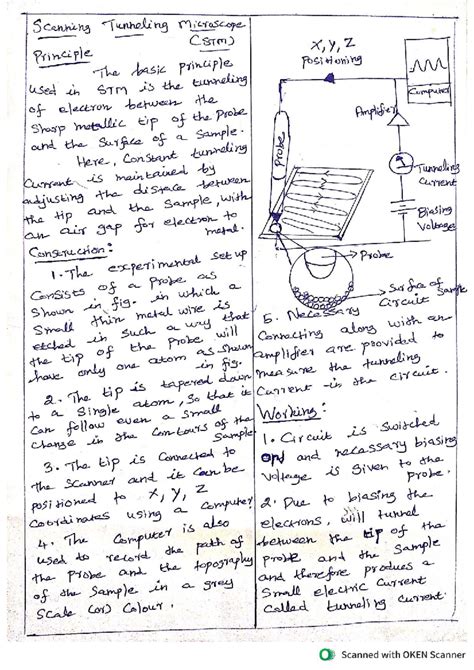 Scanning Tunneling Microscope
(STM)
Principle
The basic principle
used in STM is the tunneling
of electron between the
sharp metallic tip of the probe
and the surface of a sample.
Here, Constant tunneling
Current is maintained by
adjusting the distace between
the tip and the sample, with
an air gap for electron to
metal.
Construction:
1. The experimental set up
Consists of a probe as
shown in fig. in which a
small thin metal wire is
etched in such a way that
the tip of the probe will
have only one atom as shown
in fig.
2. The tip is tapered down
to a single atom, so that it
can follow even a small
change in the contours of the
sample
3. The tip is connected to
the scanner and it can be
positioned to X, Y, Z
Coordinates using a computer
4. The Computer is also
used to record the path of
the probe and the topography
of the sample in a grey
scale (or) Colour.
X, Y, Z
Positioning
Computer
Amplifier
Probe
Tunneling
Current
Biasing
Voltage
Probe
Surface of Sample
5. Necessary Circuit
Connecting along with an
amplifier are provided to
measure the tunneling
Current in the circuit.
Working:
1. Circuit is switched
and necessary biasing
voltage is given to the
probe.
2. Due to biasing the
electrons, will tunnel
between the tip of the
probe and the sample
and therefore produces a
small electric current
called tunneling current.
Scanned with OKEN Scanner